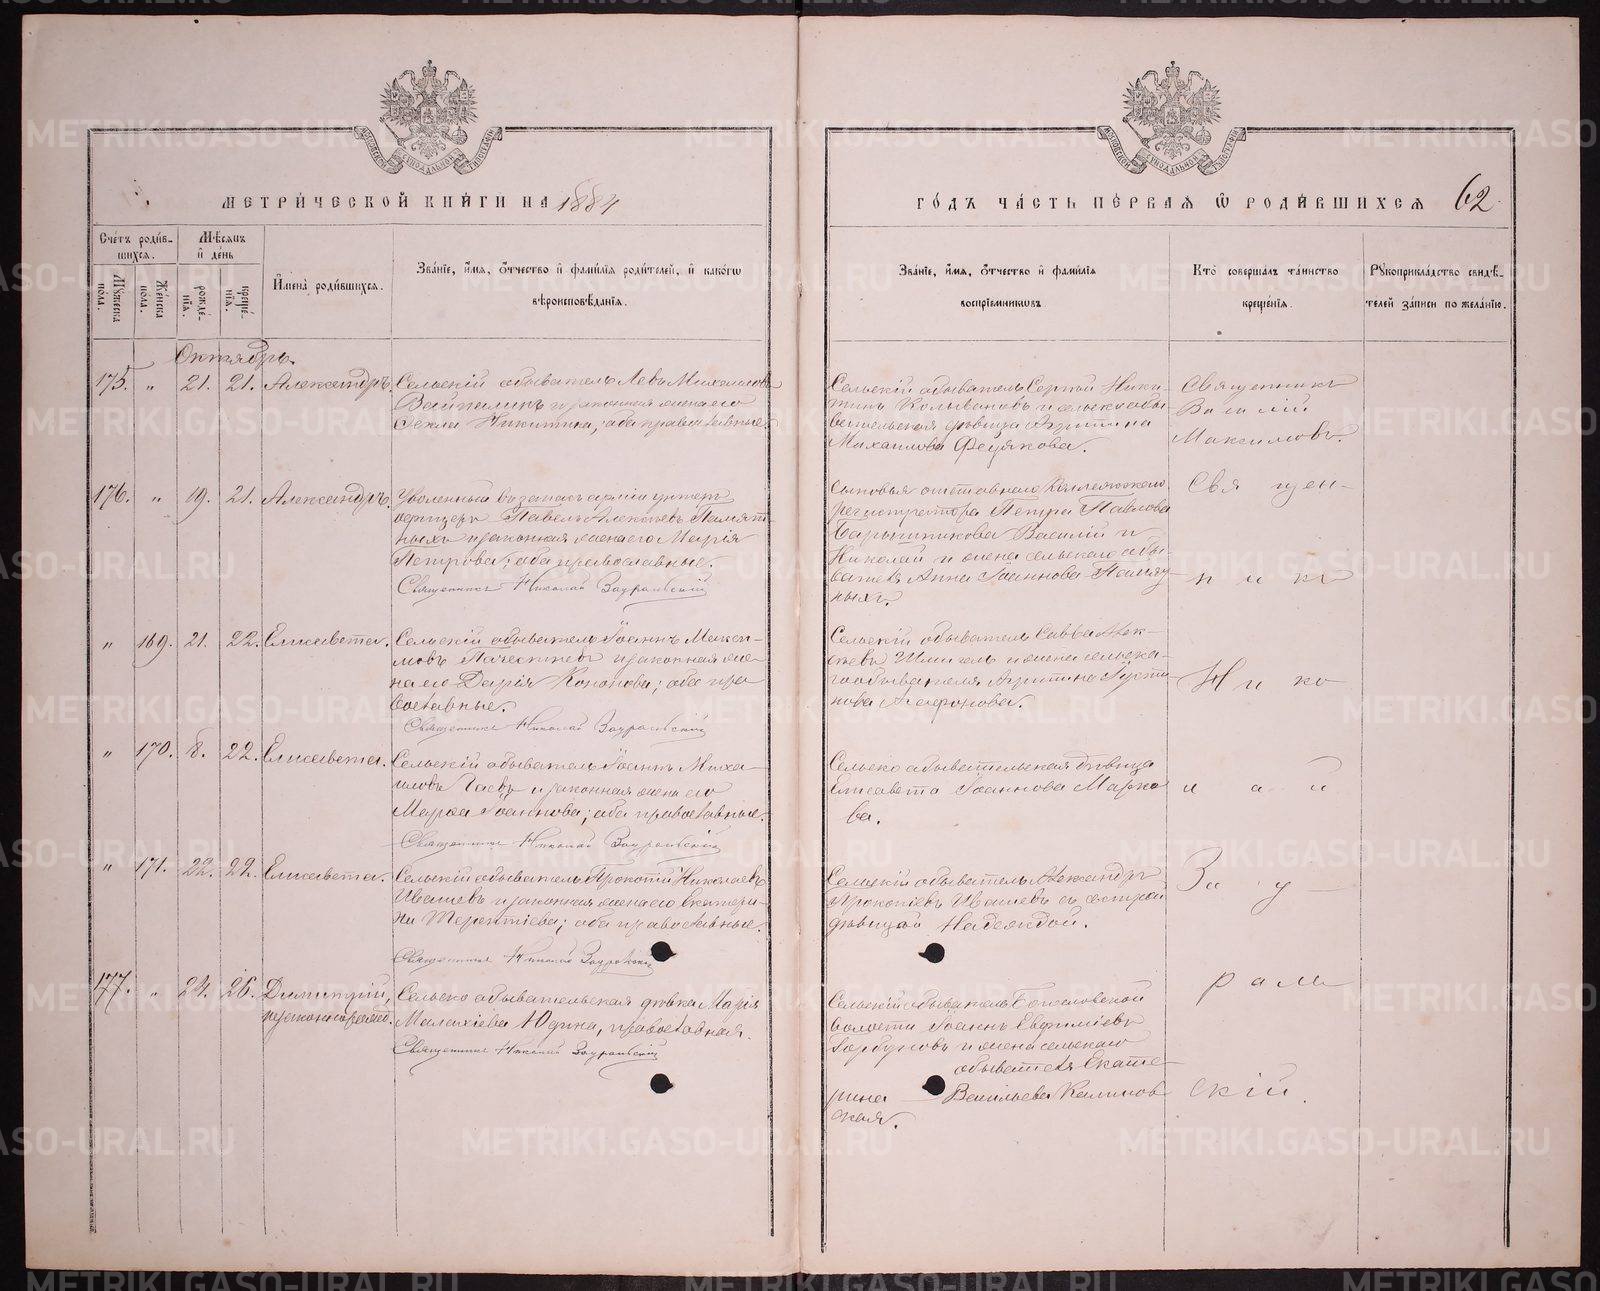 МЕТРИ́ЧЕСКОЙ КНИ́ГИ НА 1884
ГО́ДЪ ЧА́СТЬ ПЕ́РВАЯ Ѡ РОДИ́ВШИХСЯ 62.
Сче́тъ роди́в-
шихся.
Мꙋ́жеска
по́ла.
Же́нска
по́ла.
Мѣ́сяцъ
и҆ де́нь
рожде́-
нїя.
креще́-
нїя.
И҆мена̀ роди́вшихся.
Зва́нїе, и҆́мя, ѻ҆́тчество и҆ фами́лїя роди́телей, и҆ како́гѡ
вѣроисповѣ́данїя.
Зва́нїе, и҆́мя, ѻ҆́тчество и҆ фами́лїя
воспрїе́мникѡвъ
Кто̀ соверша́лъ та́инство
креще́нїя.
Рꙋкоприкла́дство свидѣ́-
телей за́писи по жела́нїю.
Октябрь.
175. „ 21. 21. Александръ. Сельскій обыватель Левъ Михаиловъ
и законная жена его
Текла Никитина, оба православные.
Сельскій обыватель Сергій Ники-
тинъ Колывановъ и сельско обы-
вательская дѣвица
Михаилова Федякова.
Священникъ
Василій
Максимовъ.
176. „ 19. 21. Александръ. Уволенный въ запасъ арміи унтеръ
офицеръ Павелъ Алексѣевъ Памят-
ныхъ и законная жена его Марія
Петрова; оба православные.
Священникъ Николай Зауральскій
Сыновья отставного Коллежскаго
регистратора Петра Павлова
Василій и
Николай и жена сельскаго обы-
вателя Анна Іоаннова Памят-
ныхъ.
Свя щен-
н и къ
„ 169. 21. 22. Елисавета. Сельскій обыватель Іоаннъ Макси-
мовъ и законная же-
на его Дарія Кононова; оба пра-
вославные.
Священникъ Николай Зауральскій
Сельскій обыватель Савва Алек-
сѣевъ и жена сельска-
го обывателя Агрипина Густи-
нова Агафонова.
Н и ко
„ 170. 8. 22. Елисавета. Сельскій обыватель Іоаннъ Миха-
иловъ и законная жена его
Марѳа Іоаннова; оба православные.
Священникъ Николай Зауральскій
Сельско обывательская дѣвица
Елисавета Іоаннова Марко-
ва.
л а й
„ 171. 22. 22. Елисавета. Сельскій обыватель Прокопій Николаевъ
Ивашевъ и законная жена его Екатери-
на Терентіева; оба православные.
Священникъ Николай Зауральскій
Сельскій обыватель Александръ
Прокопіевъ Ивашевъ съ сестрой
дѣвицой Надеждой.
За у-
177. „ 24. 26. Димитрій, Сельско обывательская дѣвка Марія
незаконнорожд. Малахіева Юдина, православная.
Священникъ Николай Зауральскій
Сельскій обыватель Богословской
волости Іоаннъ Евфиміевъ
Горбуновъ и жена сельскаго
обывателя Екате-
рина Васильева Калинов-
ская.
рал
скій.
METRIKI.GASO-URAL.RU